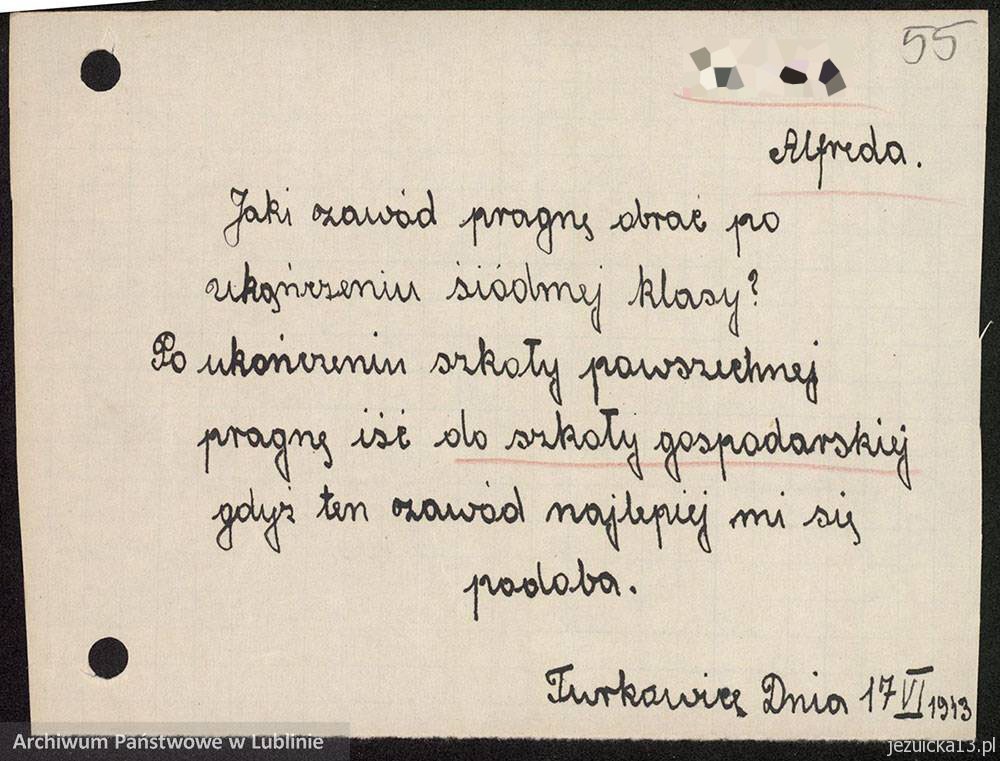 55
Alfreda.
Jaki zawód pragnę obrać po
ukończeniu śiódmej klasy?
Po ukończeniu szkoły powszechnej
pragnę iść do szkoły gospodarskiej
gdyż ten zawód najlepiej mi się
podoba.
Turkowicę Dnia 17 VI 1943
Archiwum Państwowe w Lublinie
jezuicka13.pl